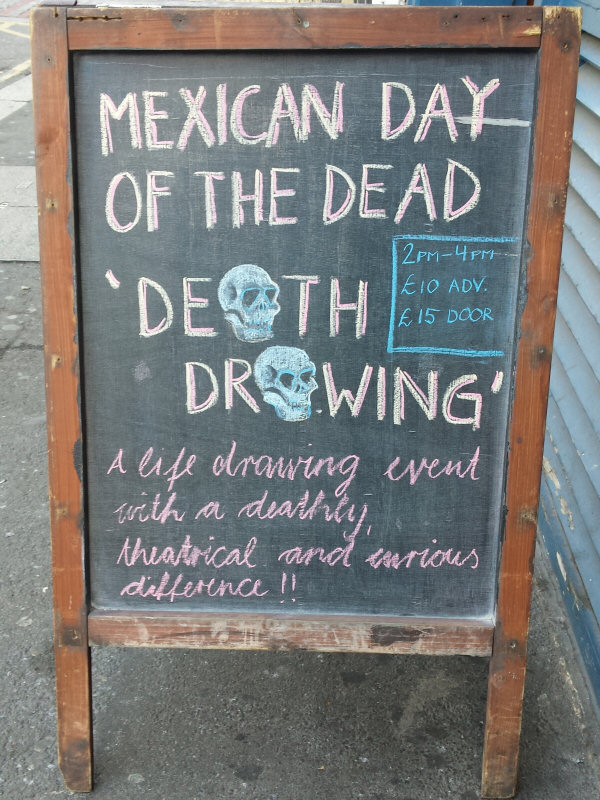 MEXICAN DAY
OF THE DEAD
2PM-4PM
£10 ADV.
£15 DOOR
'DEATH
DRAWING'
A life drawing event
with a deathly,
theatrical and curious
difference!!